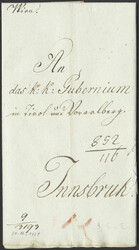 Wien
An
das k: k: Gubernium
in Tirol und Vorarlberg.
852
116
Innsbruck.
9